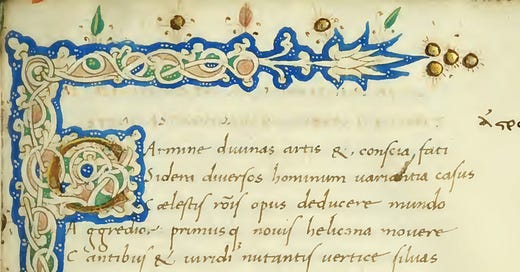 CArmine diuinas artis &, conscia fati
Sidera diuersos hominum uariantia casus
Cælestis rõis opus deducere mundo
Aggredior primusq nouis helicona mouere
Cantibus & uiridi nutantis uertice siluas